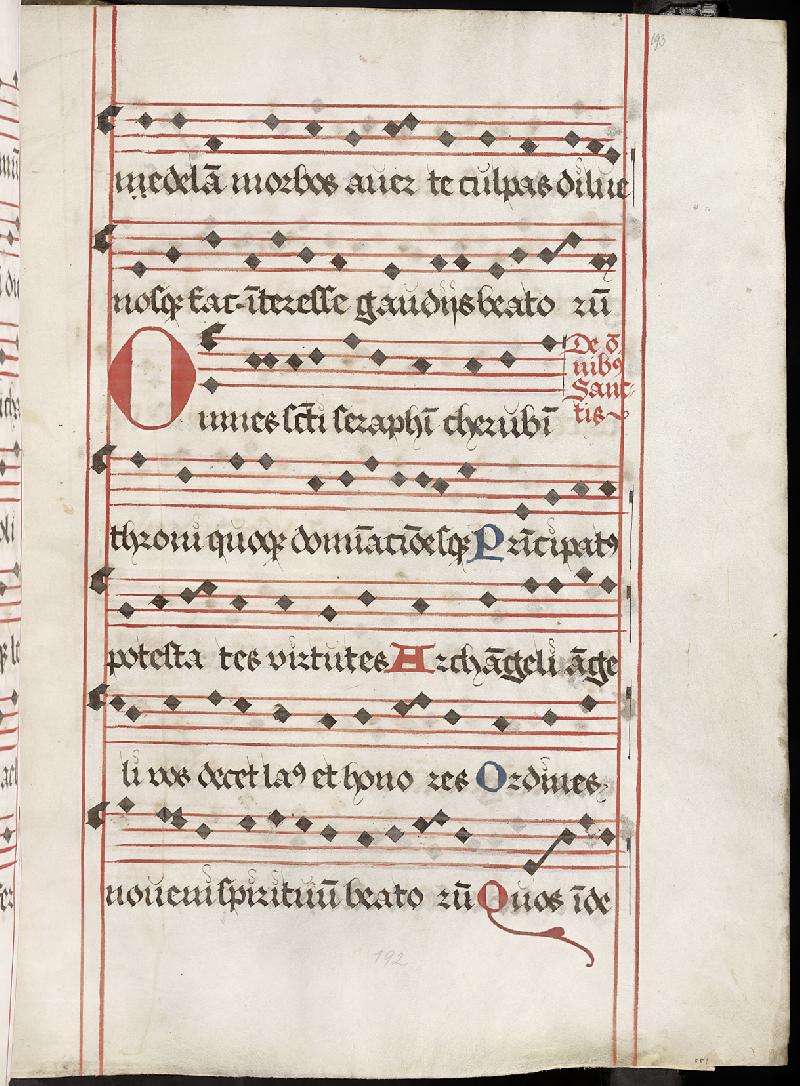 193
medelā morbos auer te culpas dilue
nosqꝫ fac īteresse gaudijs beato rū
De ō
nibꝰ
Sanc
tis
Omnes sc̄ti seraphī cherubī
throni quoqꝫ domīacōēsqꝫ Prīcipatꝰ
potesta tes virtutes Archāgeli āge
li vos decet laꝰ et hono res Ordines
noueni spirituū beato rū Quos īde
192